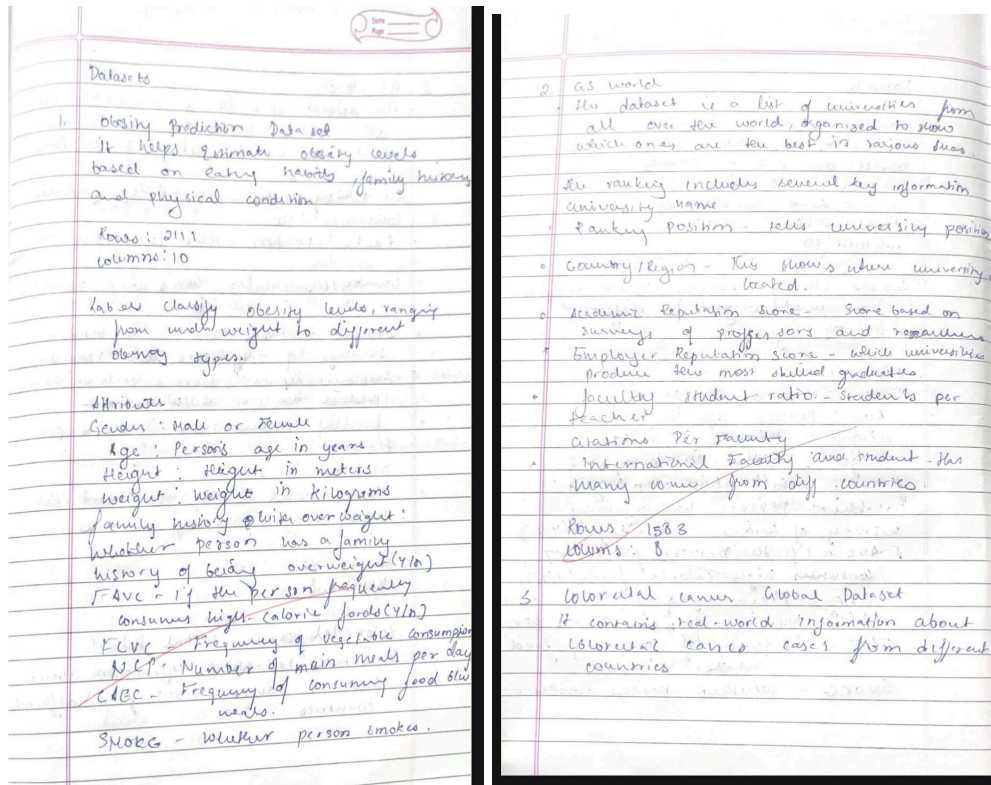 Date
Page
Datasets
1. Obesity Prediction Dataset
it helps Estimate obesity levels
based on eating habits, family history
and physical condition.
Rows: 2111
columns: 10
Label classify obesity levels, ranging
from under weight to different
obesity types.
Attributes:
Gender: Male or Female
Age: Person's age in years
Height: Height in meters
Weight: Weight in kilograms
family history with overweight:
Whether person has a family
history of being overweight (Y/N)
FAVC - if the person frequency
consumes high-calorie foods (Y/N)
FCVC - Frequency of vegetable consumption
NCP: Number of main meals per day
CAEC - Frequency of consuming food b/w
meals.
SMOKE - Whether person smokes.
2. QS world
The dataset is a list of universities from
all over the world, organized to show
which ones are the best in various
the ranking includes several key information
university name
Ranking Position - tells university position
Country/Region - This shows where university
located.
Academic Reputation Score - Score based on
surveys of proffessors and researchers
Employer Reputation score - which universities
produce the most skilled graduates.
faculty student ratio - Students per
teacher
Citations Per Faculty
International Faculty and student - Has
many come from diff countries.
Rows: 1583
colums: 8
3. Colorectal cancer Global Dataset
It contains real-world information about
colorectal cancer cases from different
countries